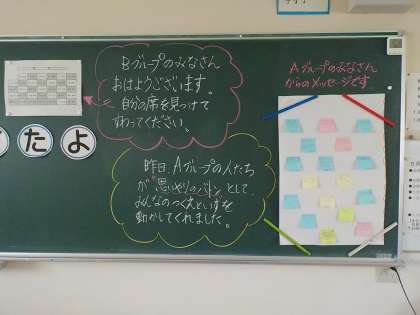 Bグループのみなさん
おはようございます。
自分の席を見つけて
すわってください。
Aグループのみなさん
からのメッセージです。
たよ
昨日、Aグループの人たち
が"思いやりのバトン"として、
みんなのつくえといすを
動かしてくれました。